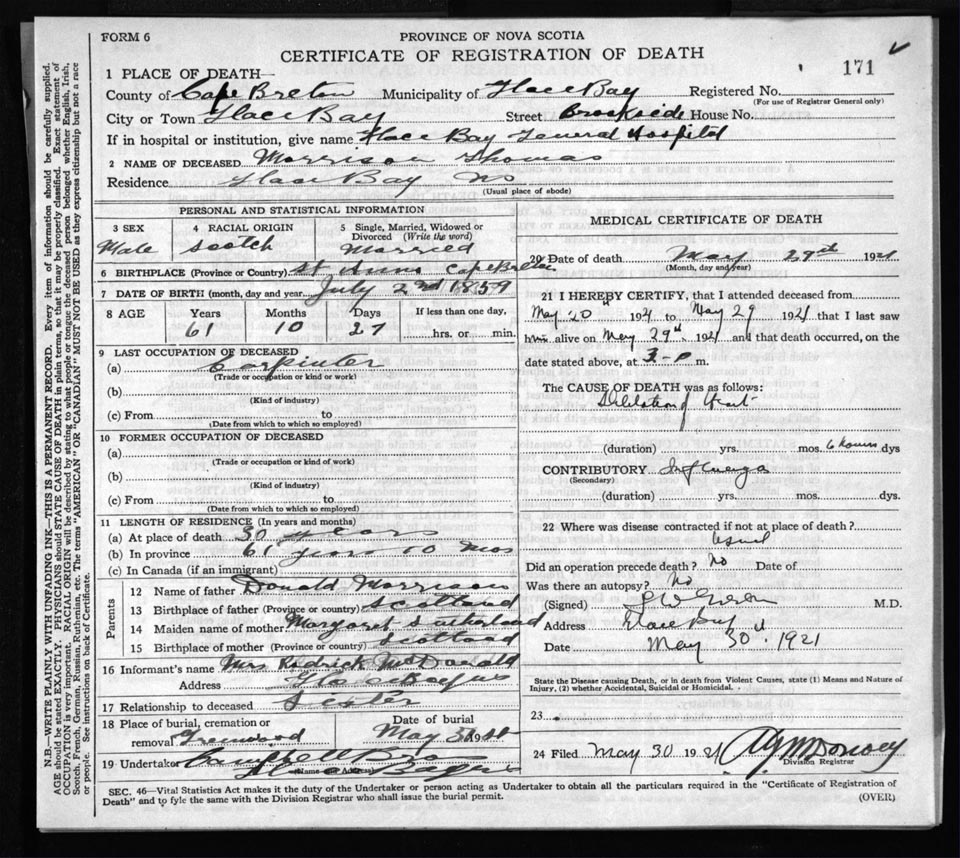 FORM 6
PROVINCE OF NOVA SCOTIA
CERTIFICATE OF REGISTRATION OF DEATH
171
1 PLACE OF DEATH—
County of Cape Breton Municipality of Glace Bay Registered No.
(For use of Registrar General only)
City or Town Glace Bay Street Brookside House No.
If in hospital or institution, give name Glace Bay General Hospital
2 NAME OF DECEASED Morrison Thomas
Residence Glace Bay NS
(Usual place of abode)
PERSONAL AND STATISTICAL INFORMATION
3 SEX
Male
4 RACIAL ORIGIN
Scotch
5 Single, Married, Widowed or Divorced (Write the word)
Married
6 BIRTHPLACE (Province or Country) St Anns Cape Breton
7 DATE OF BIRTH (month, day and year) July 2nd 1859
8 AGE Years Months Days If less than one day,
61 10 27 hrs. or min.
9 LAST OCCUPATION OF DECEASED
(a) Carpinter
(Trade or occupation or kind or work)
(b)
(Kind of industry)
(c) From to
(Date from which to which so employed)
10 FORMER OCCUPATION OF DECEASED
(a)
(Trade or occupation or kind of work)
(b)
(Kind of industry)
(c) From to
(Date from which to which so employed)
11 LENGTH OF RESIDENCE (In years and months)
(a) At place of death 30 years
(b) In province 61 years 10 mos
(c) In Canada (if an immigrant)
Parents
12 Name of father Donald Morrison
13 Birthplace of father (Province or country) Scotland
14 Maiden name of mother Margaret Sutherland
15 Birthplace of mother (Province or country) Scotland
16 Informant's name Mrs Rodrick McDonald
Address
17 Relationship to deceased Sister
18 Place of burial, cremation or removal Greenwood
Date of burial
May 31 1921
19 Undertaker
(Name or Address)
MEDICAL CERTIFICATE OF DEATH
20 Date of death May 29th 1921
(Month, day and year)
21 I HEREBY CERTIFY, that I attended deceased from
May 20 1921 to May 29 1921 that I last saw
him alive on May 29th 1921 and that death occurred, on the
date stated above, at 3-p m.
The CAUSE OF DEATH was as follows:
(duration) yrs. mos. 6 hours dys
CONTRIBUTORY Influenza
(Secondary)
(duration) yrs. mos. dys.
22 Where was disease contracted if not at place of death?
Did an operation precede death? No Date of
Was there an autopsy? No
(Signed) M.D.
Address Glace Bay
Date May 30. 1921
State the Disease causing Death, or in death from Violent Causes, state (1) Means and Nature of
Injury, (2) whether Accidental, Suicidal or Homicidal.
23
24 Filed May 30 1921
Division Registrar
SEC. 46—Vital Statistics Act makes it the duty of the Undertaker or person acting as Undertaker to obtain all the particulars required in the "Certificate of Registration of
Death" and to fyle the same with the Division Registrar who shall issue the burial permit.
(OVER)
N.B.—WRITE PLAINLY WITH UNFADING INK—THIS IS A PERMANENT RECORD. Every item of information should be carefully supplied.
AGE should be stated EXACTLY. PHYSICIANS should STATE CAUSE OF DEATH in plain terms, so that it may be properly classified. Exact statement of
OCCUPATION is very important. RACIAL ORIGIN will be described by stating to what people or tongue the deceased person belonged whether English, Irish,
Scotch, French, German, Russian, Ruthenian, etc. The terms "AMERICAN" OR "CANADIAN" MUST NOT BE USED as they express citizenship but not a race
or people. See instructions on back of Certificate.